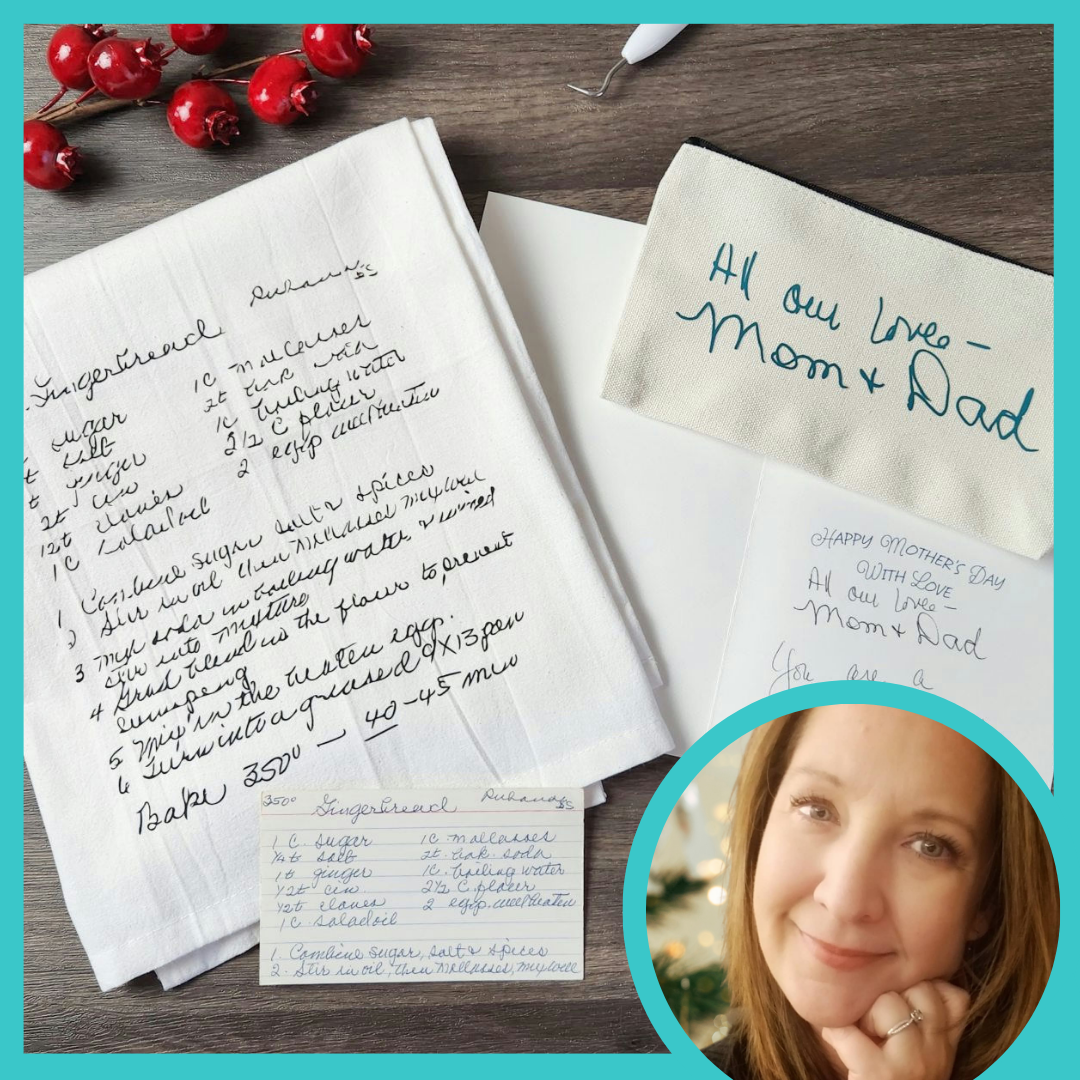 Gingerbread
sugar 1C Mallasses
salt 2t bak soda
ginger 1C boiling water
cin 2 1/2 C flour
1/2t cloves 2 eggs well beaten
1C saladoil
1 Combine sugar salt & spices
2 Stir in oil then Mallasses mix well
3 Mix soda in boiling water &
stir into mixture
4 Grad blend in the flour to prevent
lumping
5 Mix in the beaten eggs.
6 Turn into a greased 9X13 pan
Bake 350° — 40-45 min
All our love-
Mom & Dad
HAPPY MOTHER'S DAY
WITH LOVE
All our love-
Mom & Dad
You are a
350° Gingerbread
1 C. sugar 1C Mallasses
salt 2t. bak. soda
1t ginger 1C. boiling water
1/2t cin 2 1/2 C. flour
1/2t cloves 2 eggs. well beaten
1 C saladoil
1. Combine sugar, salt & spices
2. Stir in oil, then Mallasses, mix well